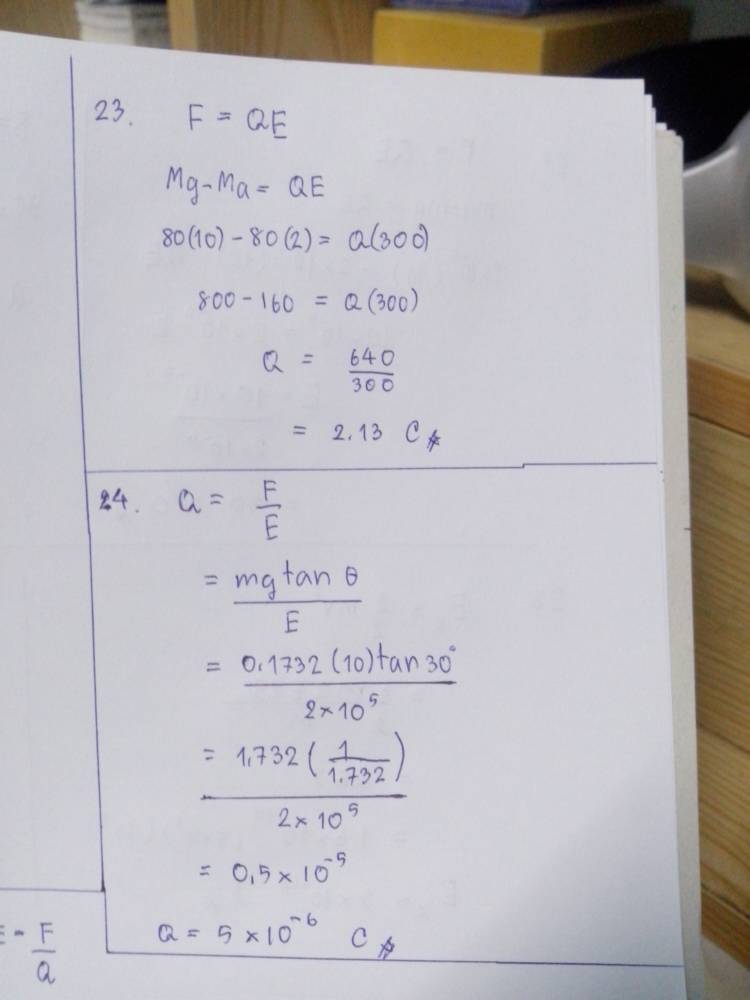 23. F = QE
Mg - Ma = QE
80(10) - 80(2) = Q(300)
800 - 160 = Q(300)
Q = 640/300
= 2.13 C
24. Q = F/E
= mg tan θ/E
= 0.1732(10)tan30°/2×10⁵
= 1.732(1/1.732)/2×10⁵
= 0.5×10⁻⁵
Q = 5×10⁻⁶ C
E = F/Q